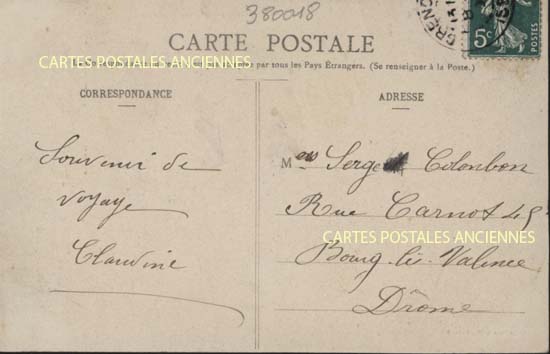 380018
CARTE POSTALE
CARTES POSTALES ANCIENNES
par tous les Pays Étrangers. (Se renseigner à la Poste.)
CORRESPONDANCE
Souvenir de
voyage
Claudine
ADRESSE
M Serge Colonbon
Rue Carnot 45
CARTES POSTALES ANCIENNES
Bourg-lès-Valence
Drôme
GRENOBLE
5c